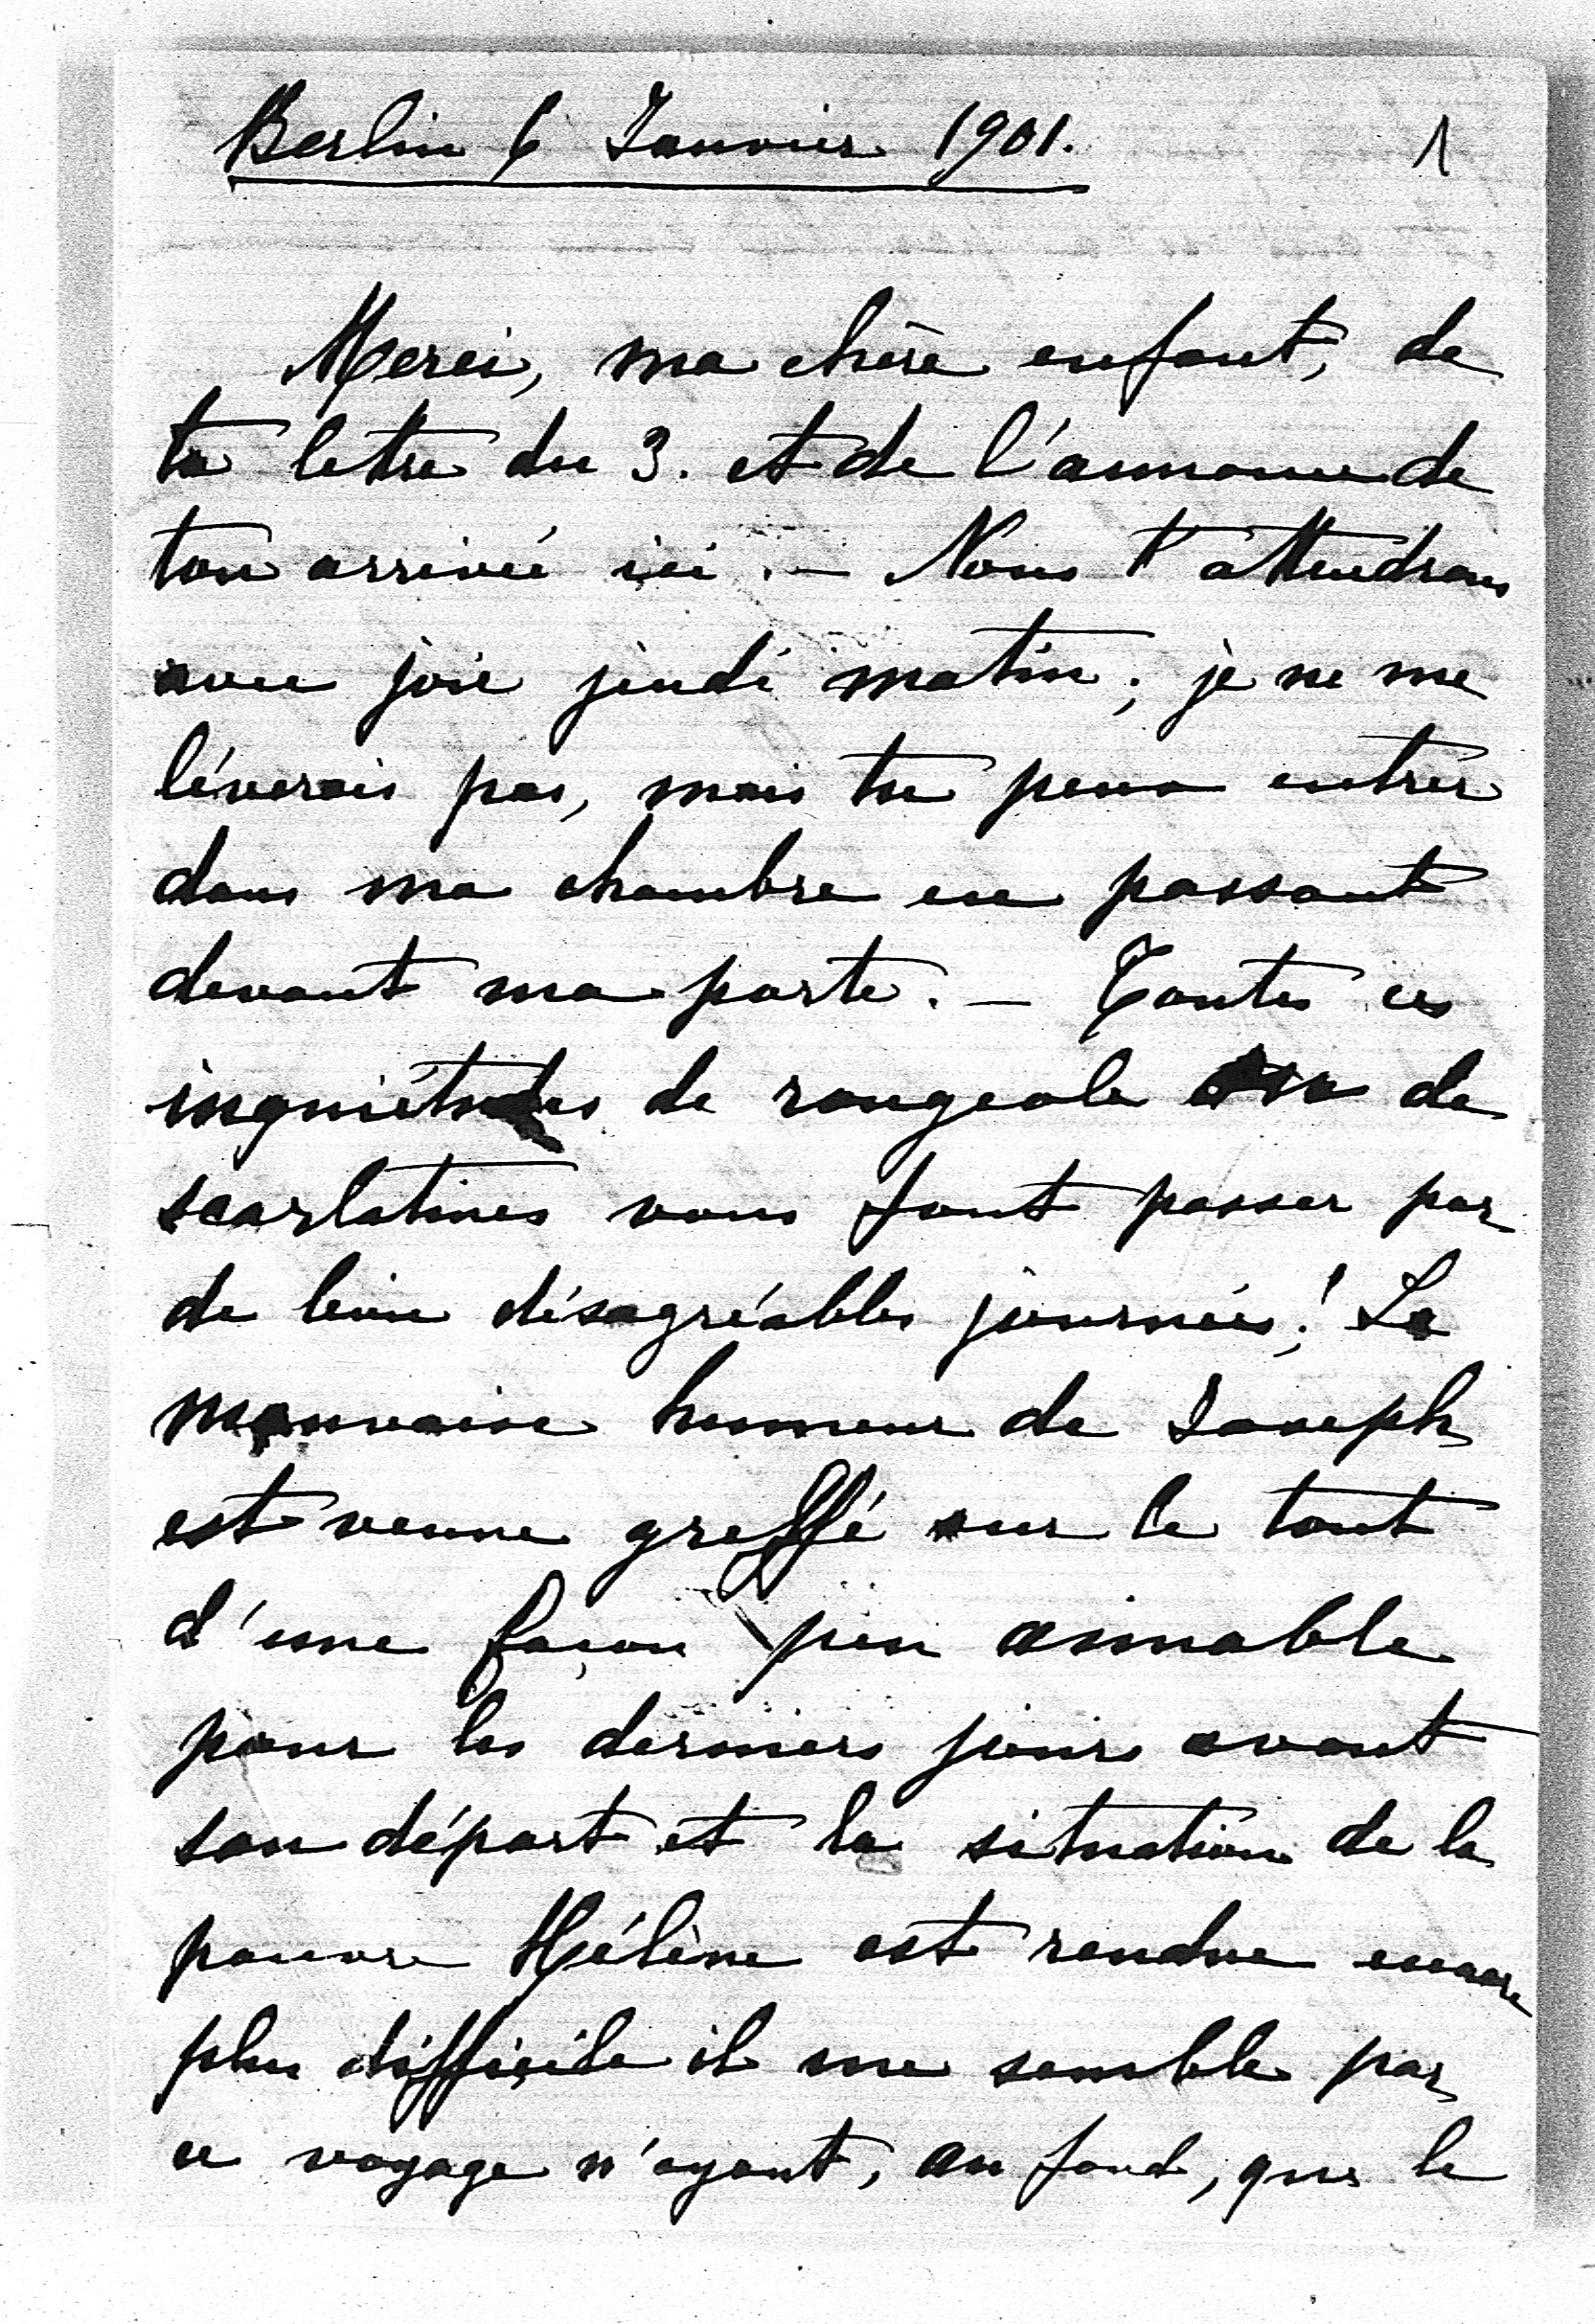 Berlin 6 Janvier 1901.
1
Merci, ma chère enfant, de
ta lettre du 3. et de l'annonce de
ton arrivée ici. — Nous t'attendrons
avec joie jeudi matin; je ne me
léverais pas, mais tu peux entrer
dans ma chambre en passant
devant ma porte. — Toutes ces
inquiétudes de rougeole ou de
scarlatines vous font passer par
de bien désagréables journées! La
mauvaise humeur de Joseph
est venue greffé sur le tout
d'une façon peu aimable
pour les derniers jours avant
son départ et la situation de la
pauvre Hélène est rendue encore
plus difficile il me semble par
ce voyage n'ayant, au fond, que le